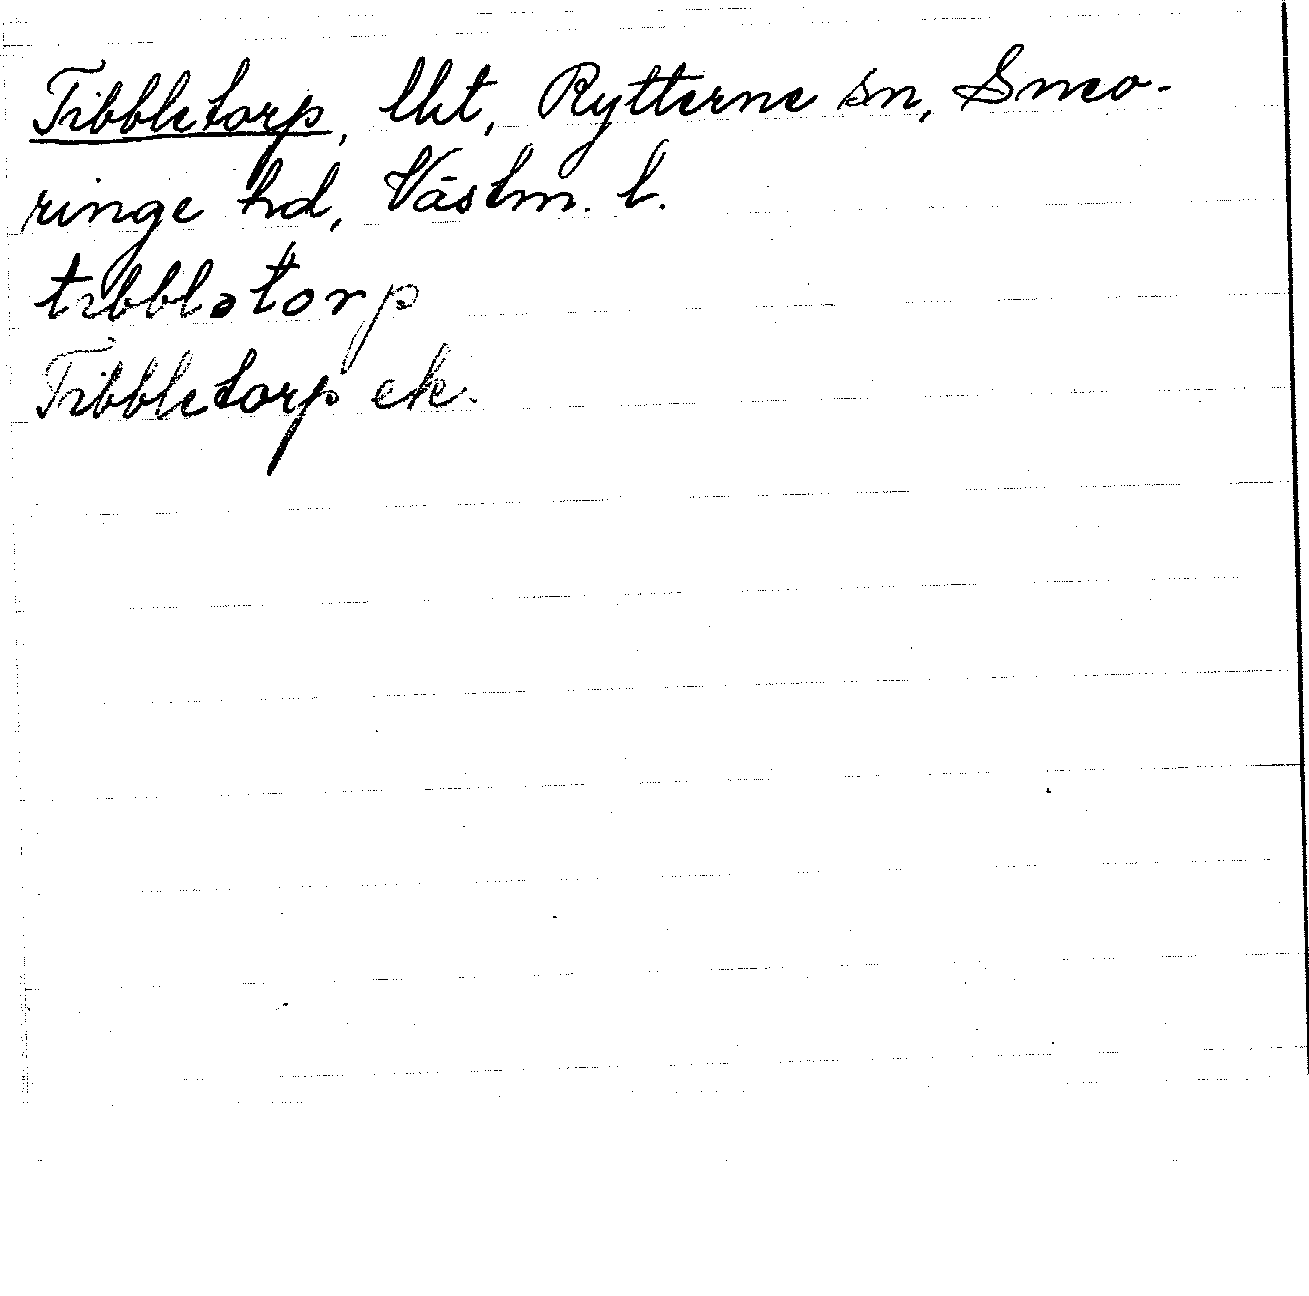 Tibbletorp, lht, Rytterne sn, Sneo-
ringe hd, Västm. l.
tibblətorp
Tibbletorp ek.